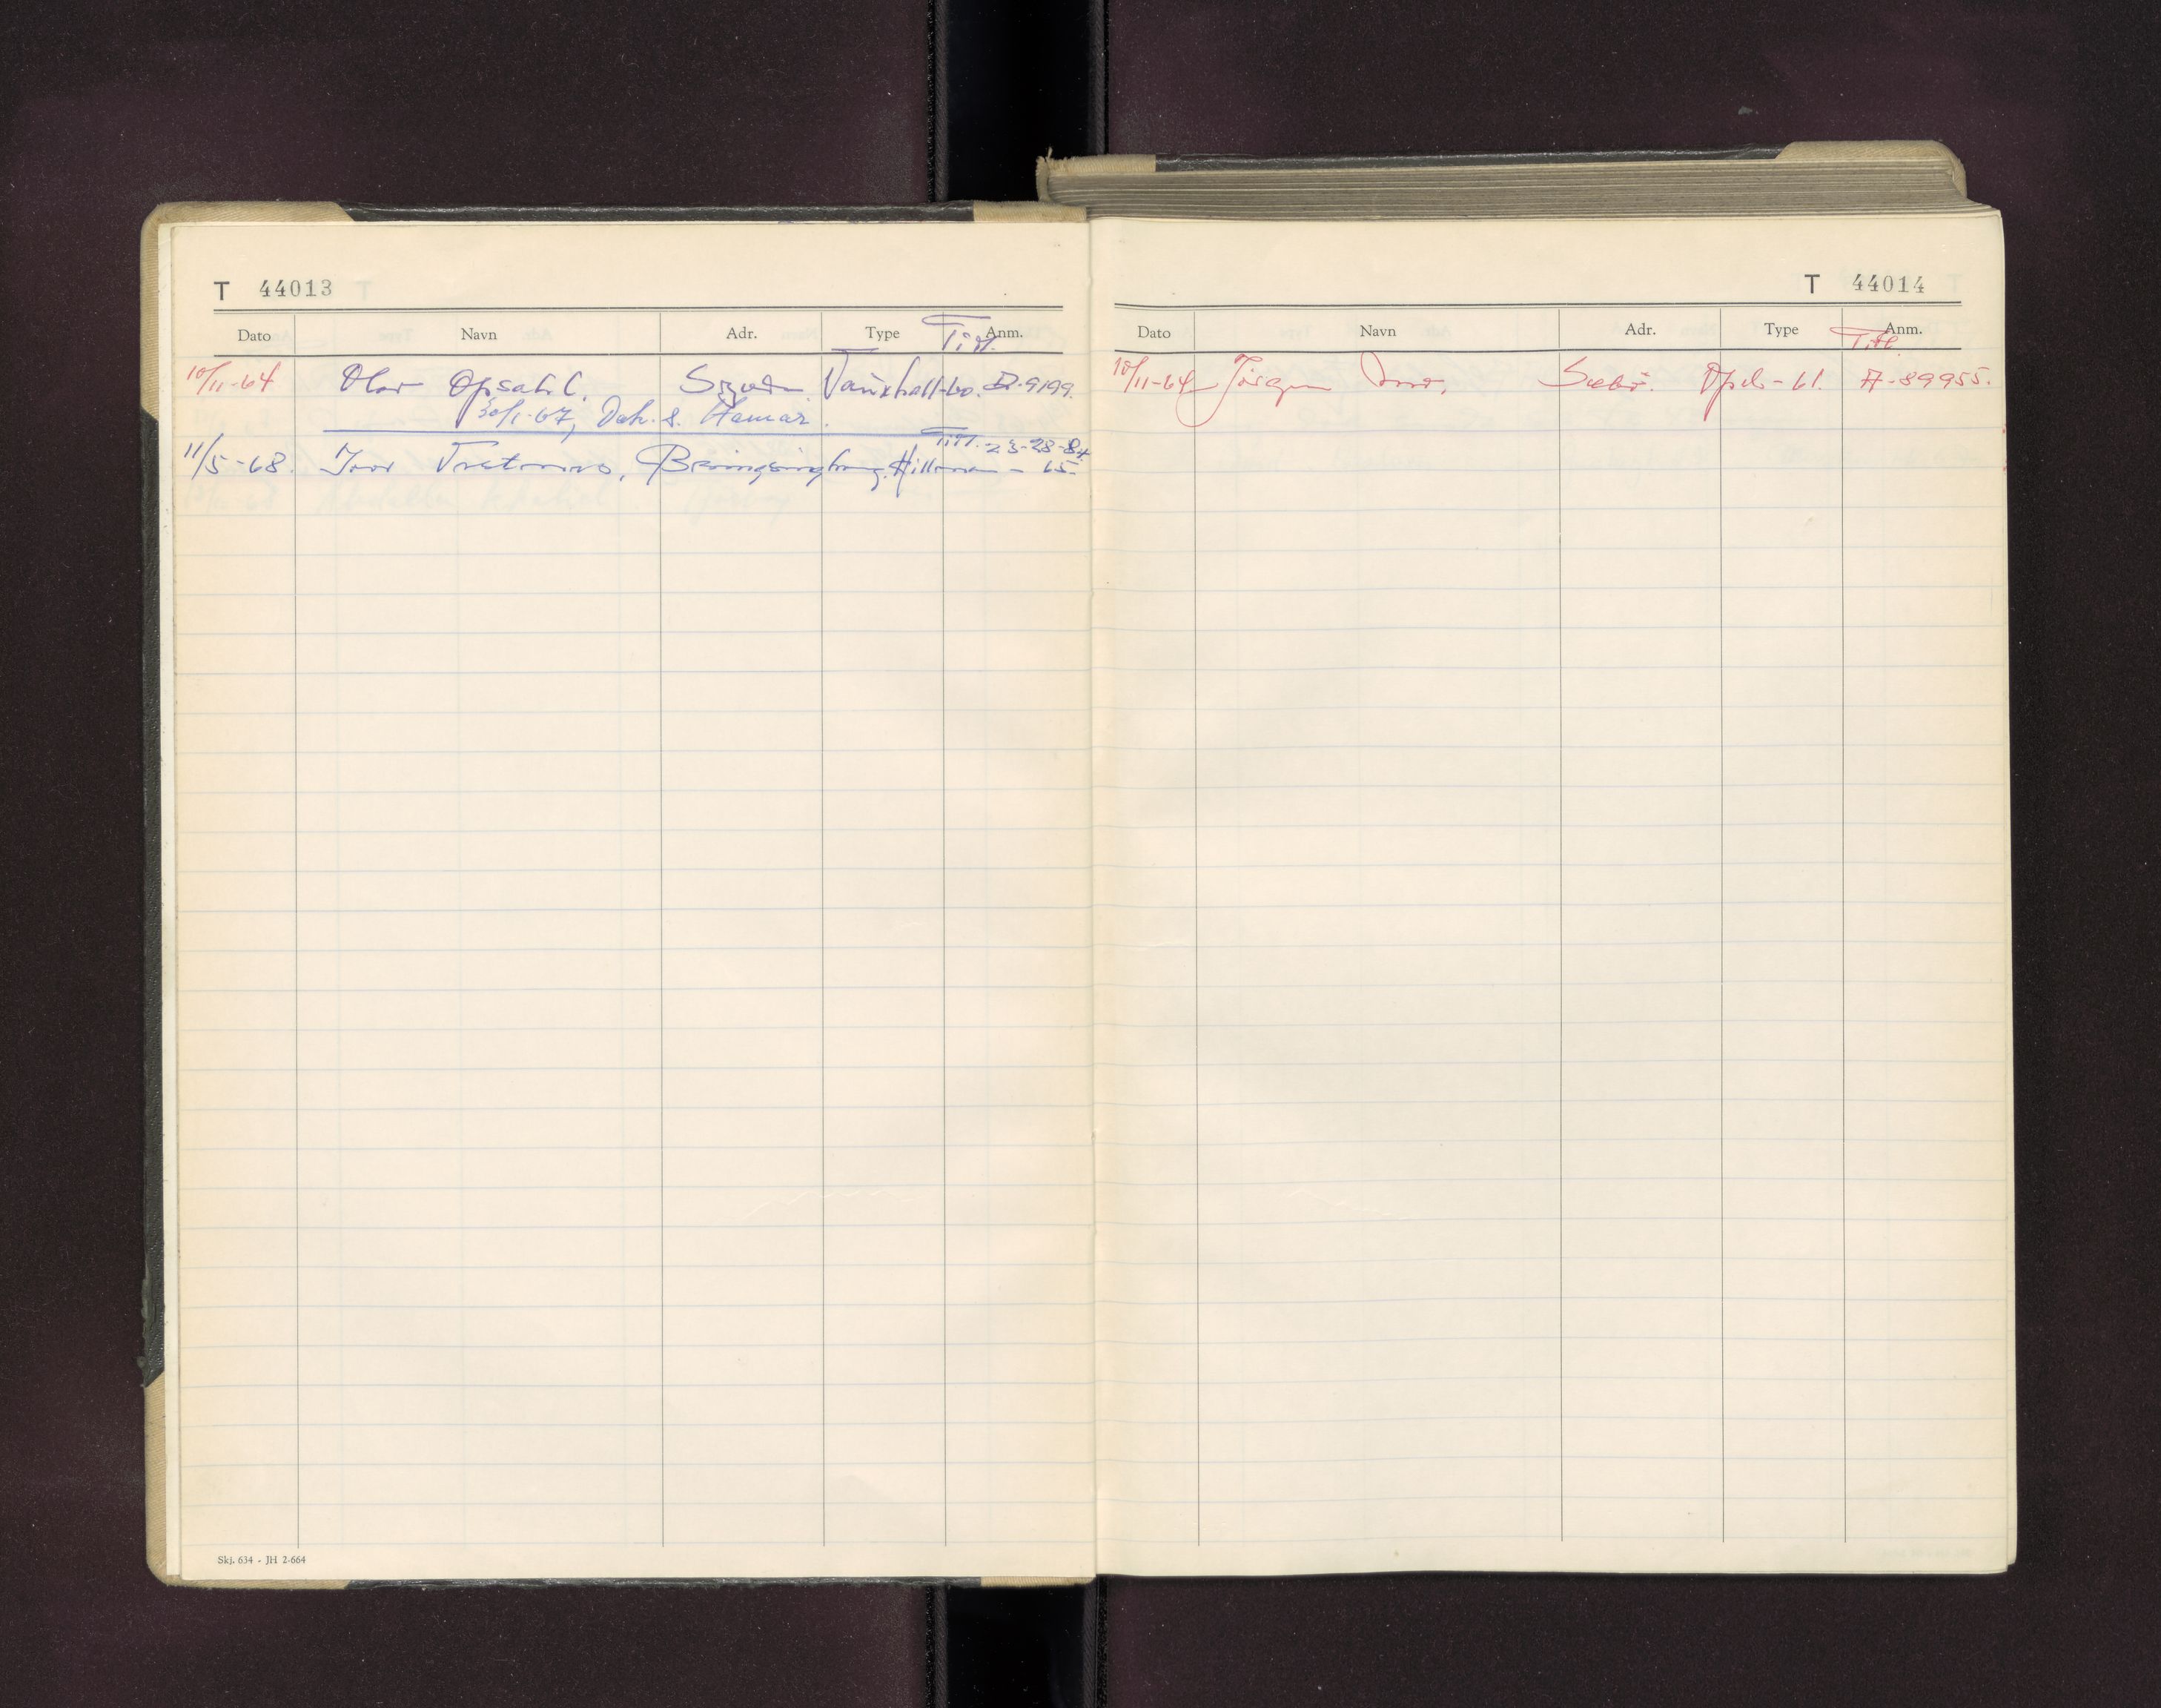 T 44013
Dato Navn Adr. Type Anm.
Tidl.
10/11-64 Olav Opsahl. Vauxhall-60. D-9199.
30/1-67, Dek. s. Hamar.
Tidl. 23-28-84
11/5-68. Ivar Hillman - 65-
Skj. 634 - JH 2-664
T 44014
Dato Navn Adr. Type Anm.
Tidl.
10/11-64 Jørgen Sæbø. Opel-61. A-89955.